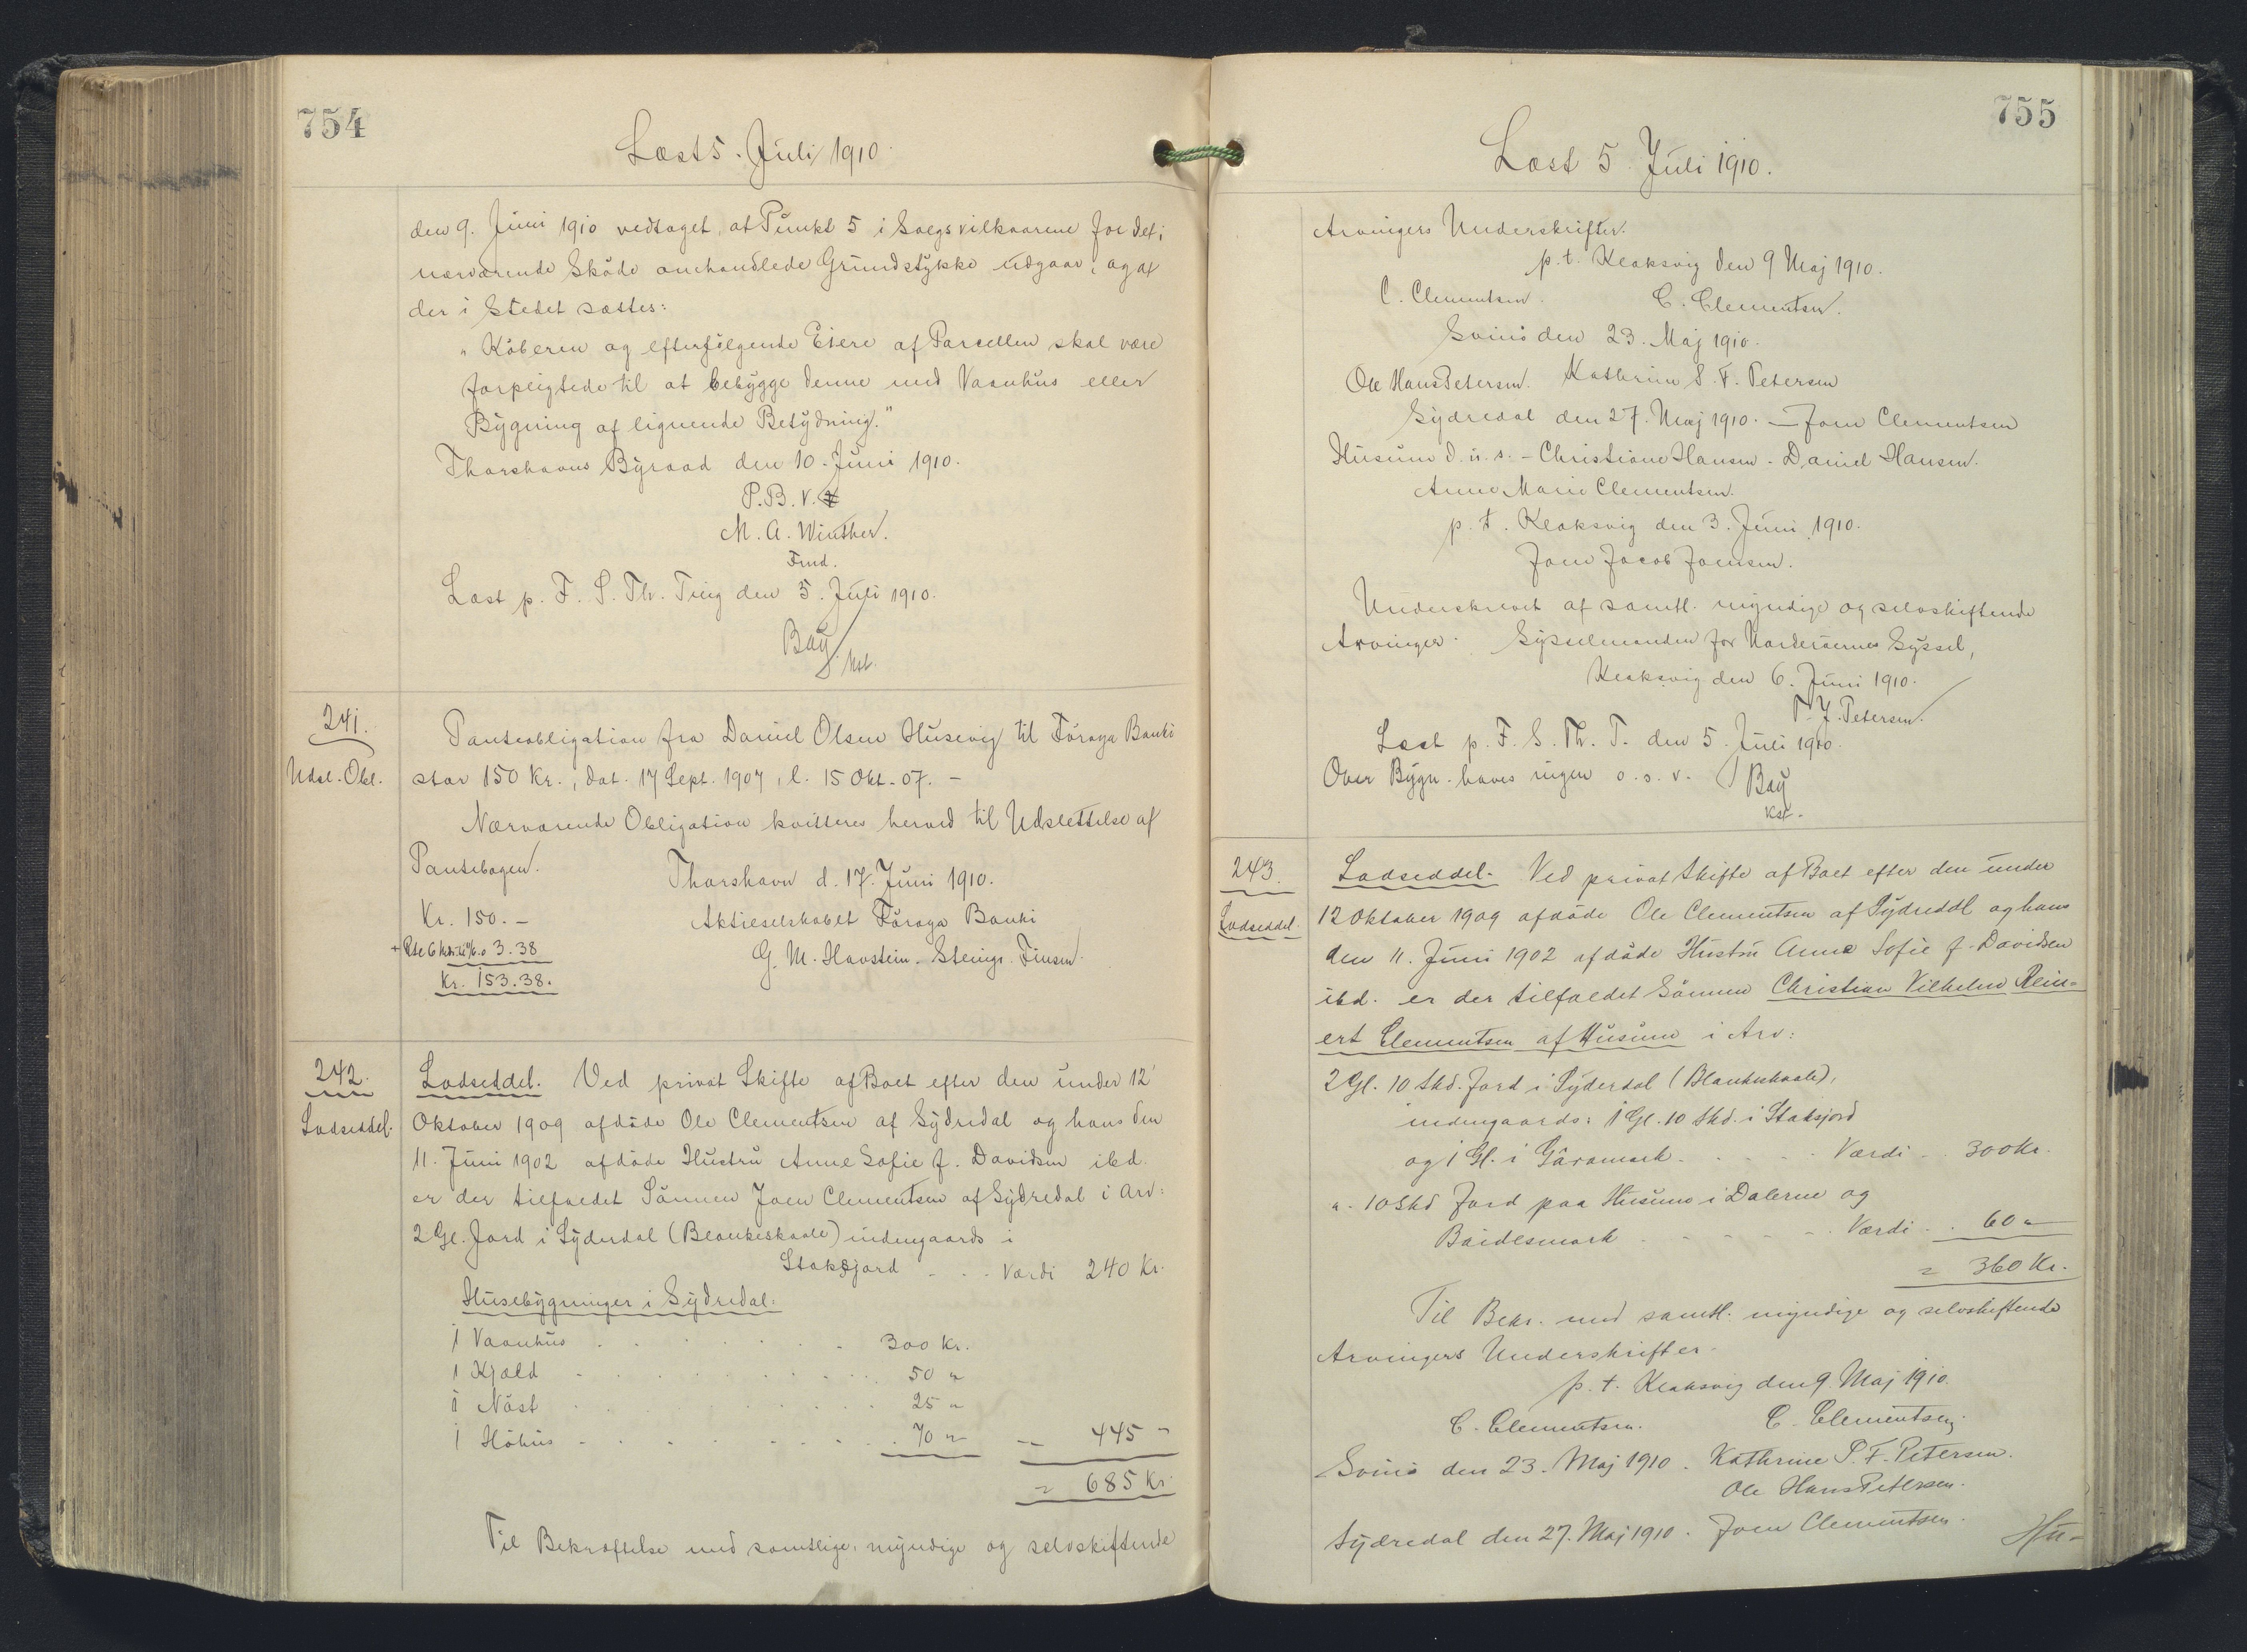 754
Læst 5. Juli 1910.
den 9. Juni 1910 vedtaget, at Punkt 5 i Salgsvilkaarene for det i
nærværende Skøde omhandlede Grundstykke udgaar, og at
der i Stedet sættes:
"Køberen og efterfølgende Eiere af Parcellen skal være
forpligtede til at bebygge denne med Vaanhus eller
Bygning af lignende Betydning."
Thorshavns Byraad den 10. Juni 1910.
P.B.V.
M. A. Winther.
Fmd.
Læst p. F. S. Th. Ting den 5. Juli 1910.
Bay
kst.
241.
Udsl. Obl.
Panteobligation fra Daniel Olsen Husevig til Føroya Banki
stor 150 Kr., dat. 17 Sept. 1907, l. 15 Okt. 07. –
Nærværende Obligation kvitteres herved til Udslettelse af
Pantebogen.
Thorshavn d. 17. Juni 1910.
Kr. 150. –
Aktieselskabet Føroya Banki
3.38
G. M. Havstein. Steingr. Finsen.
Kr. 153.38.
242.
Lodseddel.
Lodseddel. Ved privat Skifte af Boet efter den under 12'
Oktober 1909 afdøde Ole Clementsen af Sydredal og hans den
11. Juni 1902 afdøde Hustru Anne Sofie f. Davidsen ibd.
er der tilfaldet Sønnen Joen Clementsen af Sydredal i Arv:
2 Gl. Jord i Syderdal (Blankeskaale) indengaards i
Staksjord . . . Værdi 240 Kr.
Husebygninger i Sydredal:
1 Vaanhus . . . . 300 Kr.
1 Kjald . . . . 50 "
1 Nøst . . . . 25 "
1 Høhus . . . . 70 " — 445 "
= 685 Kr.
Til Bekræftelse med samtlige, myndige og selvskiftende
755
Læst 5. Juli 1910.
Arvingers Underskrifter.
p.t. Klaksvig den 9 Maj 1910.
C. Clementsen. C. Clementsen.
Svinø den 23. Maj 1910.
Ole Hans Petersen. Kathrine S. F. Petersen
Sydredal den 27. Maj 1910. – Joen Clementsen
Husum d. u. s. – Christiane Hansen – Daniel Hansen.
Anne Marie Clementsen.
p.t. Klaksvig den 3. Juni 1910.
Joen Jacob Joensen.
Underskrevet af samtl. myndige og selvskiftende
Arvinger. Sysselmanden for Norderøernes Syssel,
Klaksvig den 6. Juni 1910.
P. J. Petersen.
Læst p. F. S. Th. T. den 5. Juli 1910.
Over Bygn. haves ingen o. s. v. Bay
kst.
243.
Lodseddel.
Lodseddel. Ved privat Skifte af Boet efter den under
12 Oktober 1909 afdøde Ole Clementsen af Sydredal og hans
den 11. Juni 1902 afdøde Hustru Anne Sofie f. Davidsen
ibd. er der tilfaldet Sønnen Christian Vilhelm Rein=
ert Clementsen af Husum i Arv:
2 Gl. 10 Skd. Jord i Syderdal (Blankeskaale),
indengaards: 1 Gl. 10 Skd. i Staksjord
og 1 Gl. i Garamark . . . . Værdi . . 300 Kr.
" 10 Skd Jord paa Husum i Dalerne og
Baidesmark . . . . Værdi . . 60 "
= 360 Kr.
Til Bekr. med samtl. myndige og selvskiftende
Arvingers Underskrifter.
p.t. Klaksvig den 9. Maj 1910.
C. Clementsen. C. Clementsen.
Svinø den 23. Maj 1910. Kathrine S. F. Petersen.
Ole Hans Petersen.
Sydredal den 27. Maj 1910. Joen Clementsen. Hu-